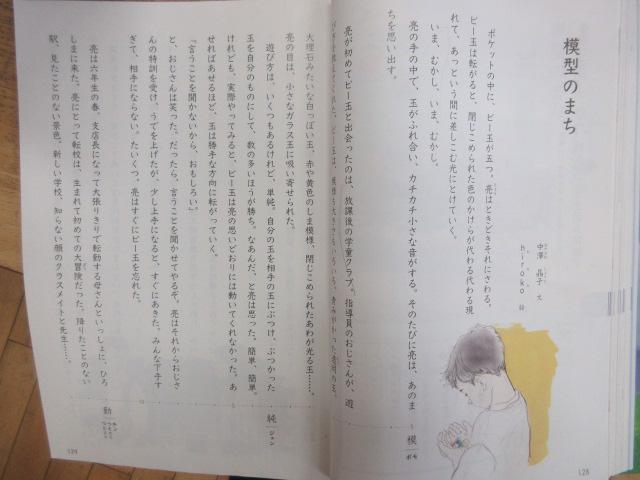 模型のまち
中澤 晶子 文
hiroko 絵
ポケットの中に、ビー玉が五つ。亮はときどきそれにさわる。
ビー玉は転がると、閉じこめられた色のかけらが代わる代わる現
れて、あっという間に差しこむ光にとけていく。
いま、むかし、いま、むかし。
亮の手の中で、玉がふれ合い、カチカチ小さな音がする。そのたびに亮は、あのま
ちを思い出す。
亮が初めてビー玉と出会ったのは、放課後の学童クラブ。指導員のおじさんが、遊
大理石みたいな白っぽい玉、赤や黄色のしま模様、閉じこめられたあわが光る玉……。
亮の目は、小さなガラス玉に吸い寄せられた。
遊び方は、いくつもあるけれど、単純。自分の玉を相手の玉にぶつけ、ぶつかった
玉を自分のものにして、数の多いほうが勝ち。なあんだ、と亮は思った。簡単、簡単。
けれども、実際やってみると、ビー玉は亮の思いどおりには動いてくれなかった。あ
せればあせるほど、玉は勝手な方向に転がっていく。
「言うことを聞かないから、おもしろい」
と、おじさんは笑った。だったら、言うことを聞かせてやるぞ。亮はそれからおじさ
んの特訓を受け、うでを上げたが、少し上手になると、すぐにあきた。みんな下手す
ぎて、相手にならない。たいくつ。亮はすぐにビー玉を忘れた。
亮は六年生の春、支店長になって大張りきりで転勤する母さんといっしょに、ひろ
しまに来た。亮にとって転校は、生まれて初めての大冒険だった。降りたことのない
駅、見たことのない景色。新しい学校、知らない顔のクラスメイトと先生……。
模 ボモ
純 ジュン
勤 キン つとめる つとまる
128
129